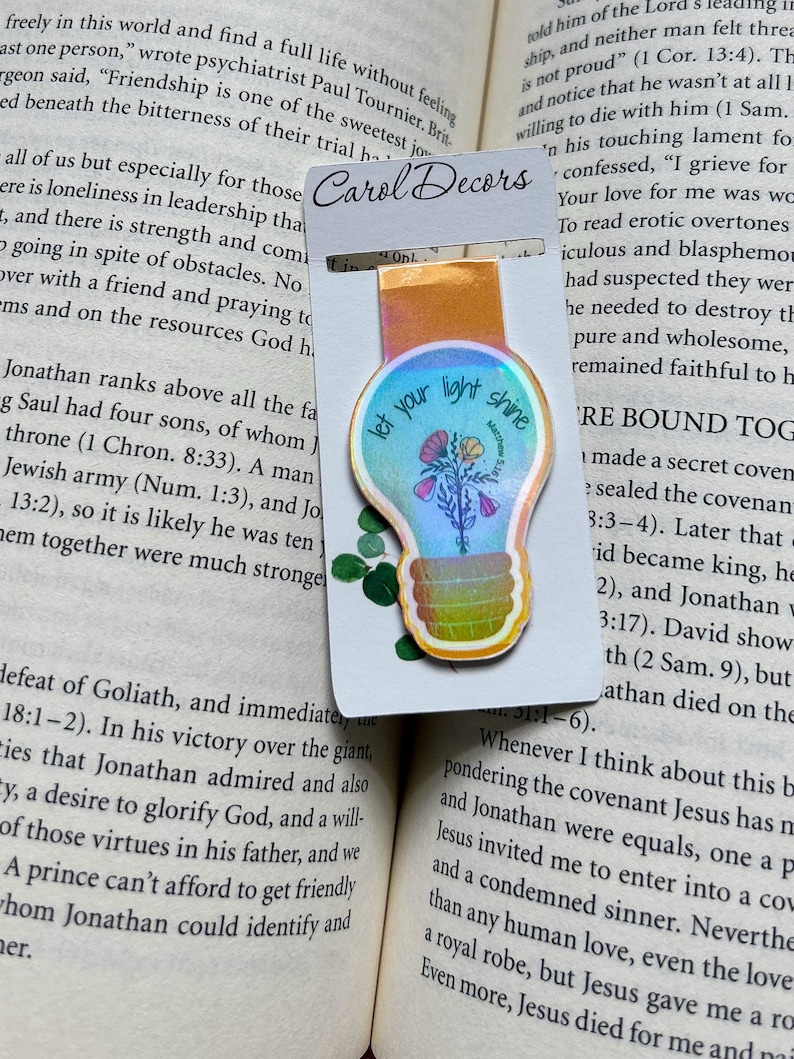 freely in this world and find a full life without feeling
ast one person,” wrote psychiatrist Paul Tournier. Brit-
rgeon said, “Friendship is one of the sweetest joys
ed beneath the bitterness of their trial had
all of us but especially for those
ere is loneliness in leadership tha
t, and there is strength and com
going in spite of obstacles. No
over with a friend and praying to
ems and on the resources God h
Jonathan ranks above all the fa
g Saul had four sons, of whom J
throne (1 Chron. 8:33). A man
Jewish army (Num. 1:3), and Jo
13:2), so it is likely he was ten
hem together were much stronger
defeat of Goliath, and immediately the
18:1–2). In his victory over the giant,
ties that Jonathan admired and also
ty, a desire to glorify God, and a will-
of those virtues in his father, and we
A prince can’t afford to get friendly
whom Jonathan could identify and
ner.
CarolDecors
let your light shine
Matthew 5:16
told him of the Lord’s leading in
ship, and neither man felt threa
is not proud” (1 Cor. 13:4). Th
and notice that he wasn’t at all
willing to die with him (1 Sam.
In his touching lament fo
confessed, “I grieve for
Your love for me was wo
To read erotic overtones
iculous and blasphemou
had suspected they were
he needed to destroy th
pure and wholesome,
remained faithful to h
RE BOUND TOG
made a secret coven
e sealed the covenant
8:3–4). Later that
id became king, he
2), and Jonathan w
3:17). David show
th (2 Sam. 9), but
athan died on the
31:1–6).
Whenever I think about this b
pondering the covenant Jesus has m
and Jonathan were equals, one a p
Jesus invited me to enter into a cov
and a condemned sinner. Neverthe
than any human love, even the love
a royal robe, but Jesus gave me a ro
Even more, Jesus died for me and pai